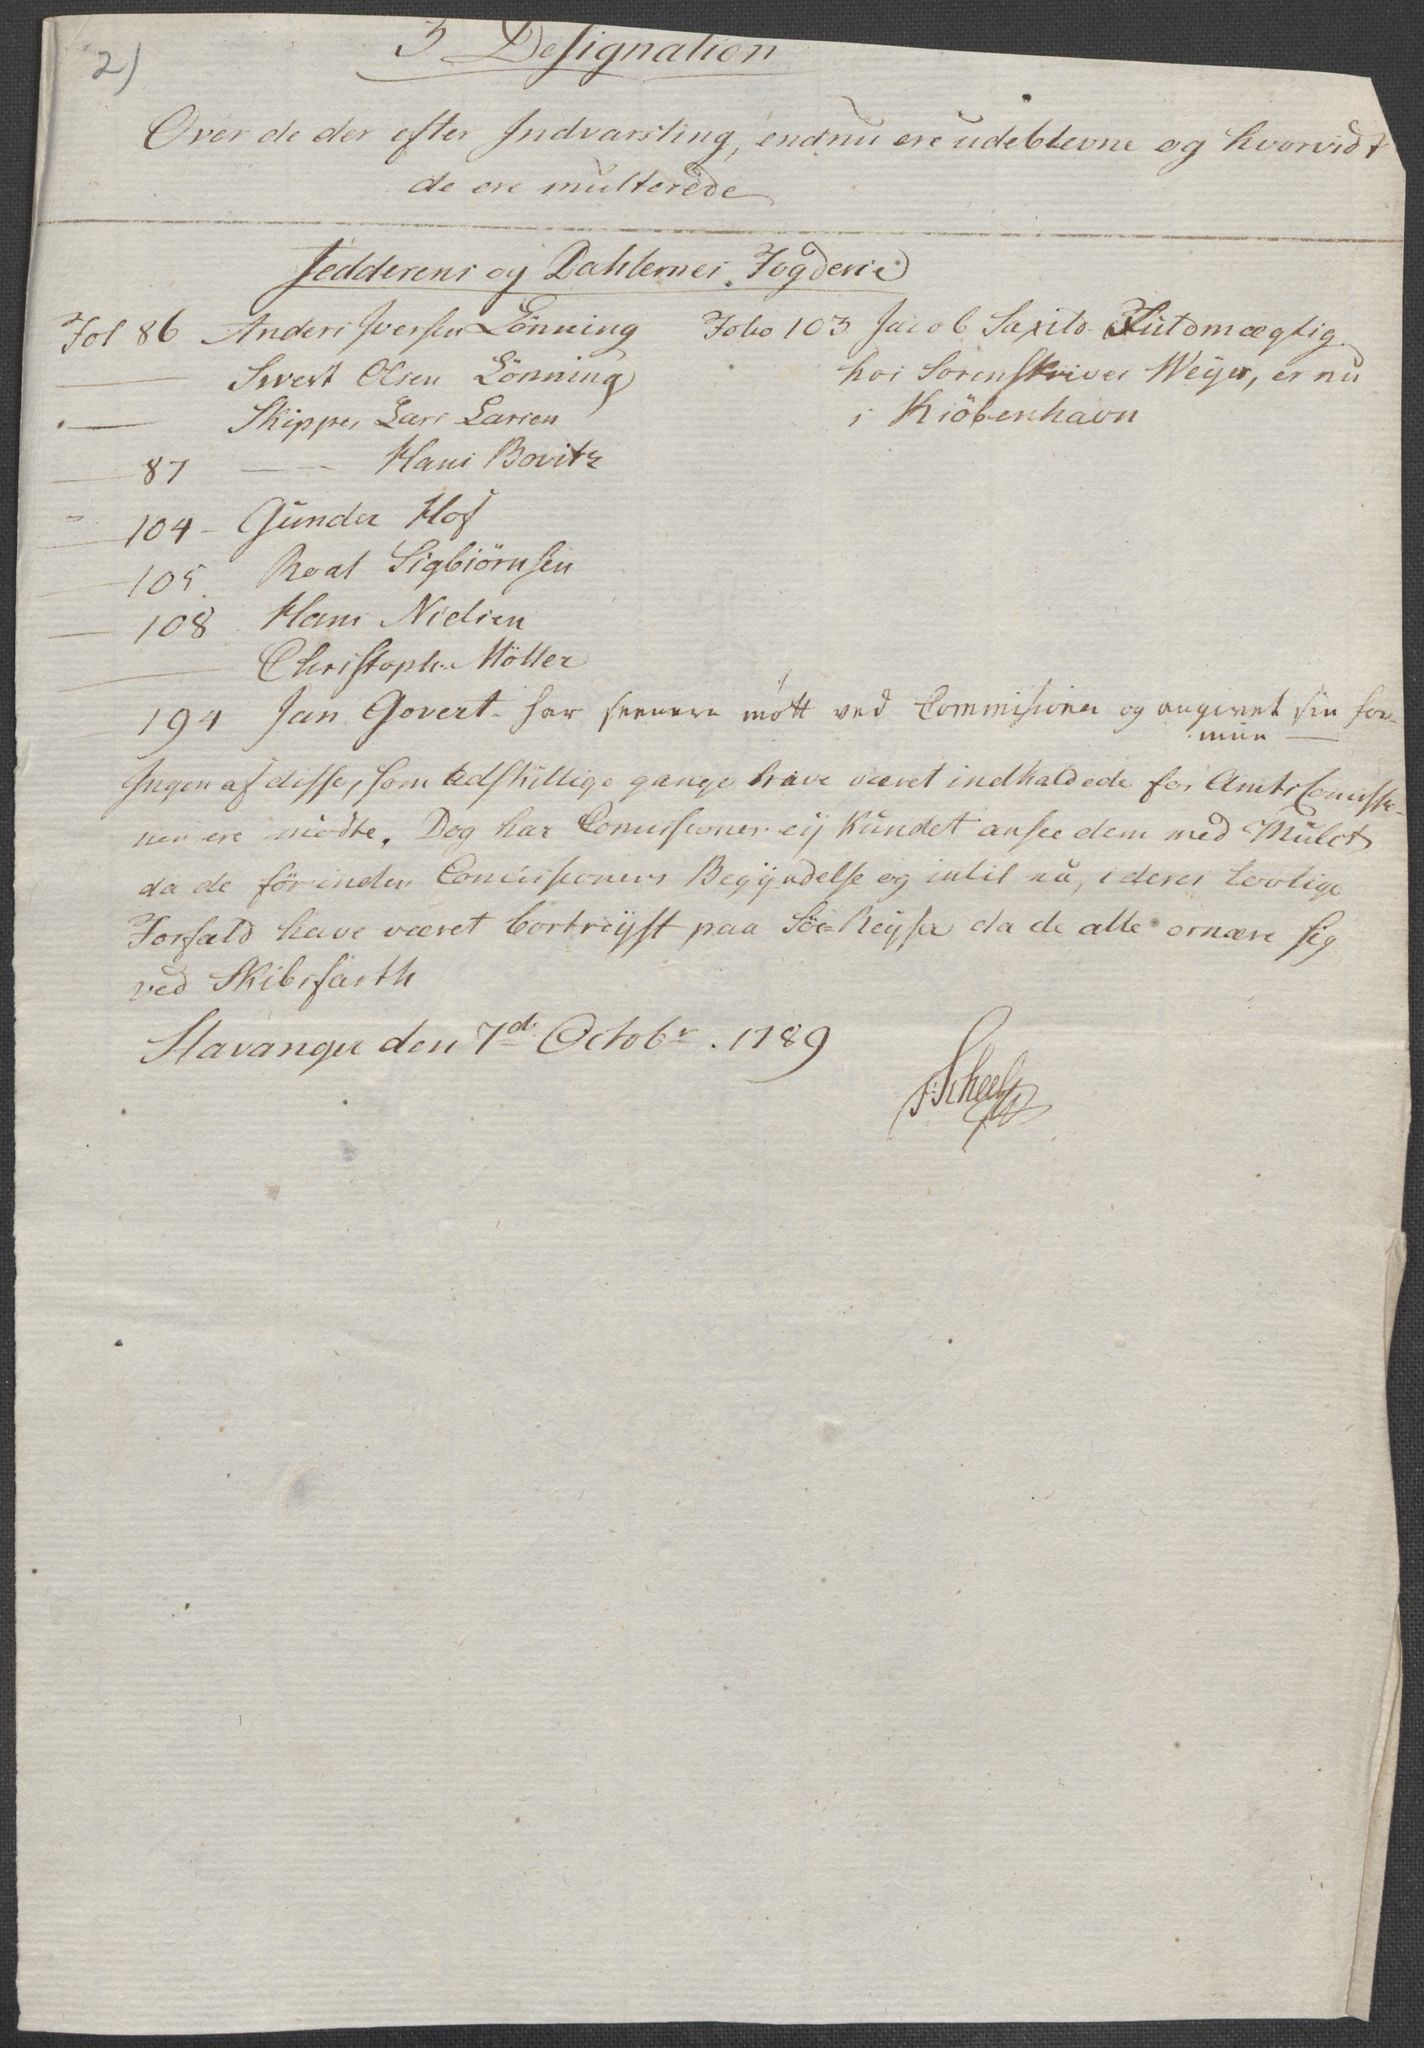 2)
3 Designation
Over de der efter Indvarsling, endnu ere udeblevne og hvorvidt
de ere multerede
Jedderens og Dahlernes Fogderie
Fol 86 Anders Iversen Lönning
— Sivert Olsen Lönning
— Skipper Lars Larsen
— 87 — — Hans Bovitz
— 104 - Gunder Hof
— 105. Roal Sigbiörnsen
— 108 Hans Nielsen
— Christoph. Möller
— 194 Jan Govert. har seenere mött ved Commisionen og angivet sin for-
mue —
Folio 103 Jacob Saxild Fuldmægtig
hos Sorenskriver Weyer, er nu
i Kiöbenhavn
Ingen af disse, som adskillige gange have været indkaldede for Amts Comissio-
nen ere mödte. Dog har Comissionen ey kundet ansee dem med Mulct
da de förinden Comissionens Begyndelse og intil nu, i deres lovlige
Forfald have været bortreyst paa Söe-Reyse da de alle ernære sig
ved Skibsfarth
Stavanger den 7de Octobr. 1789
F: Scheel